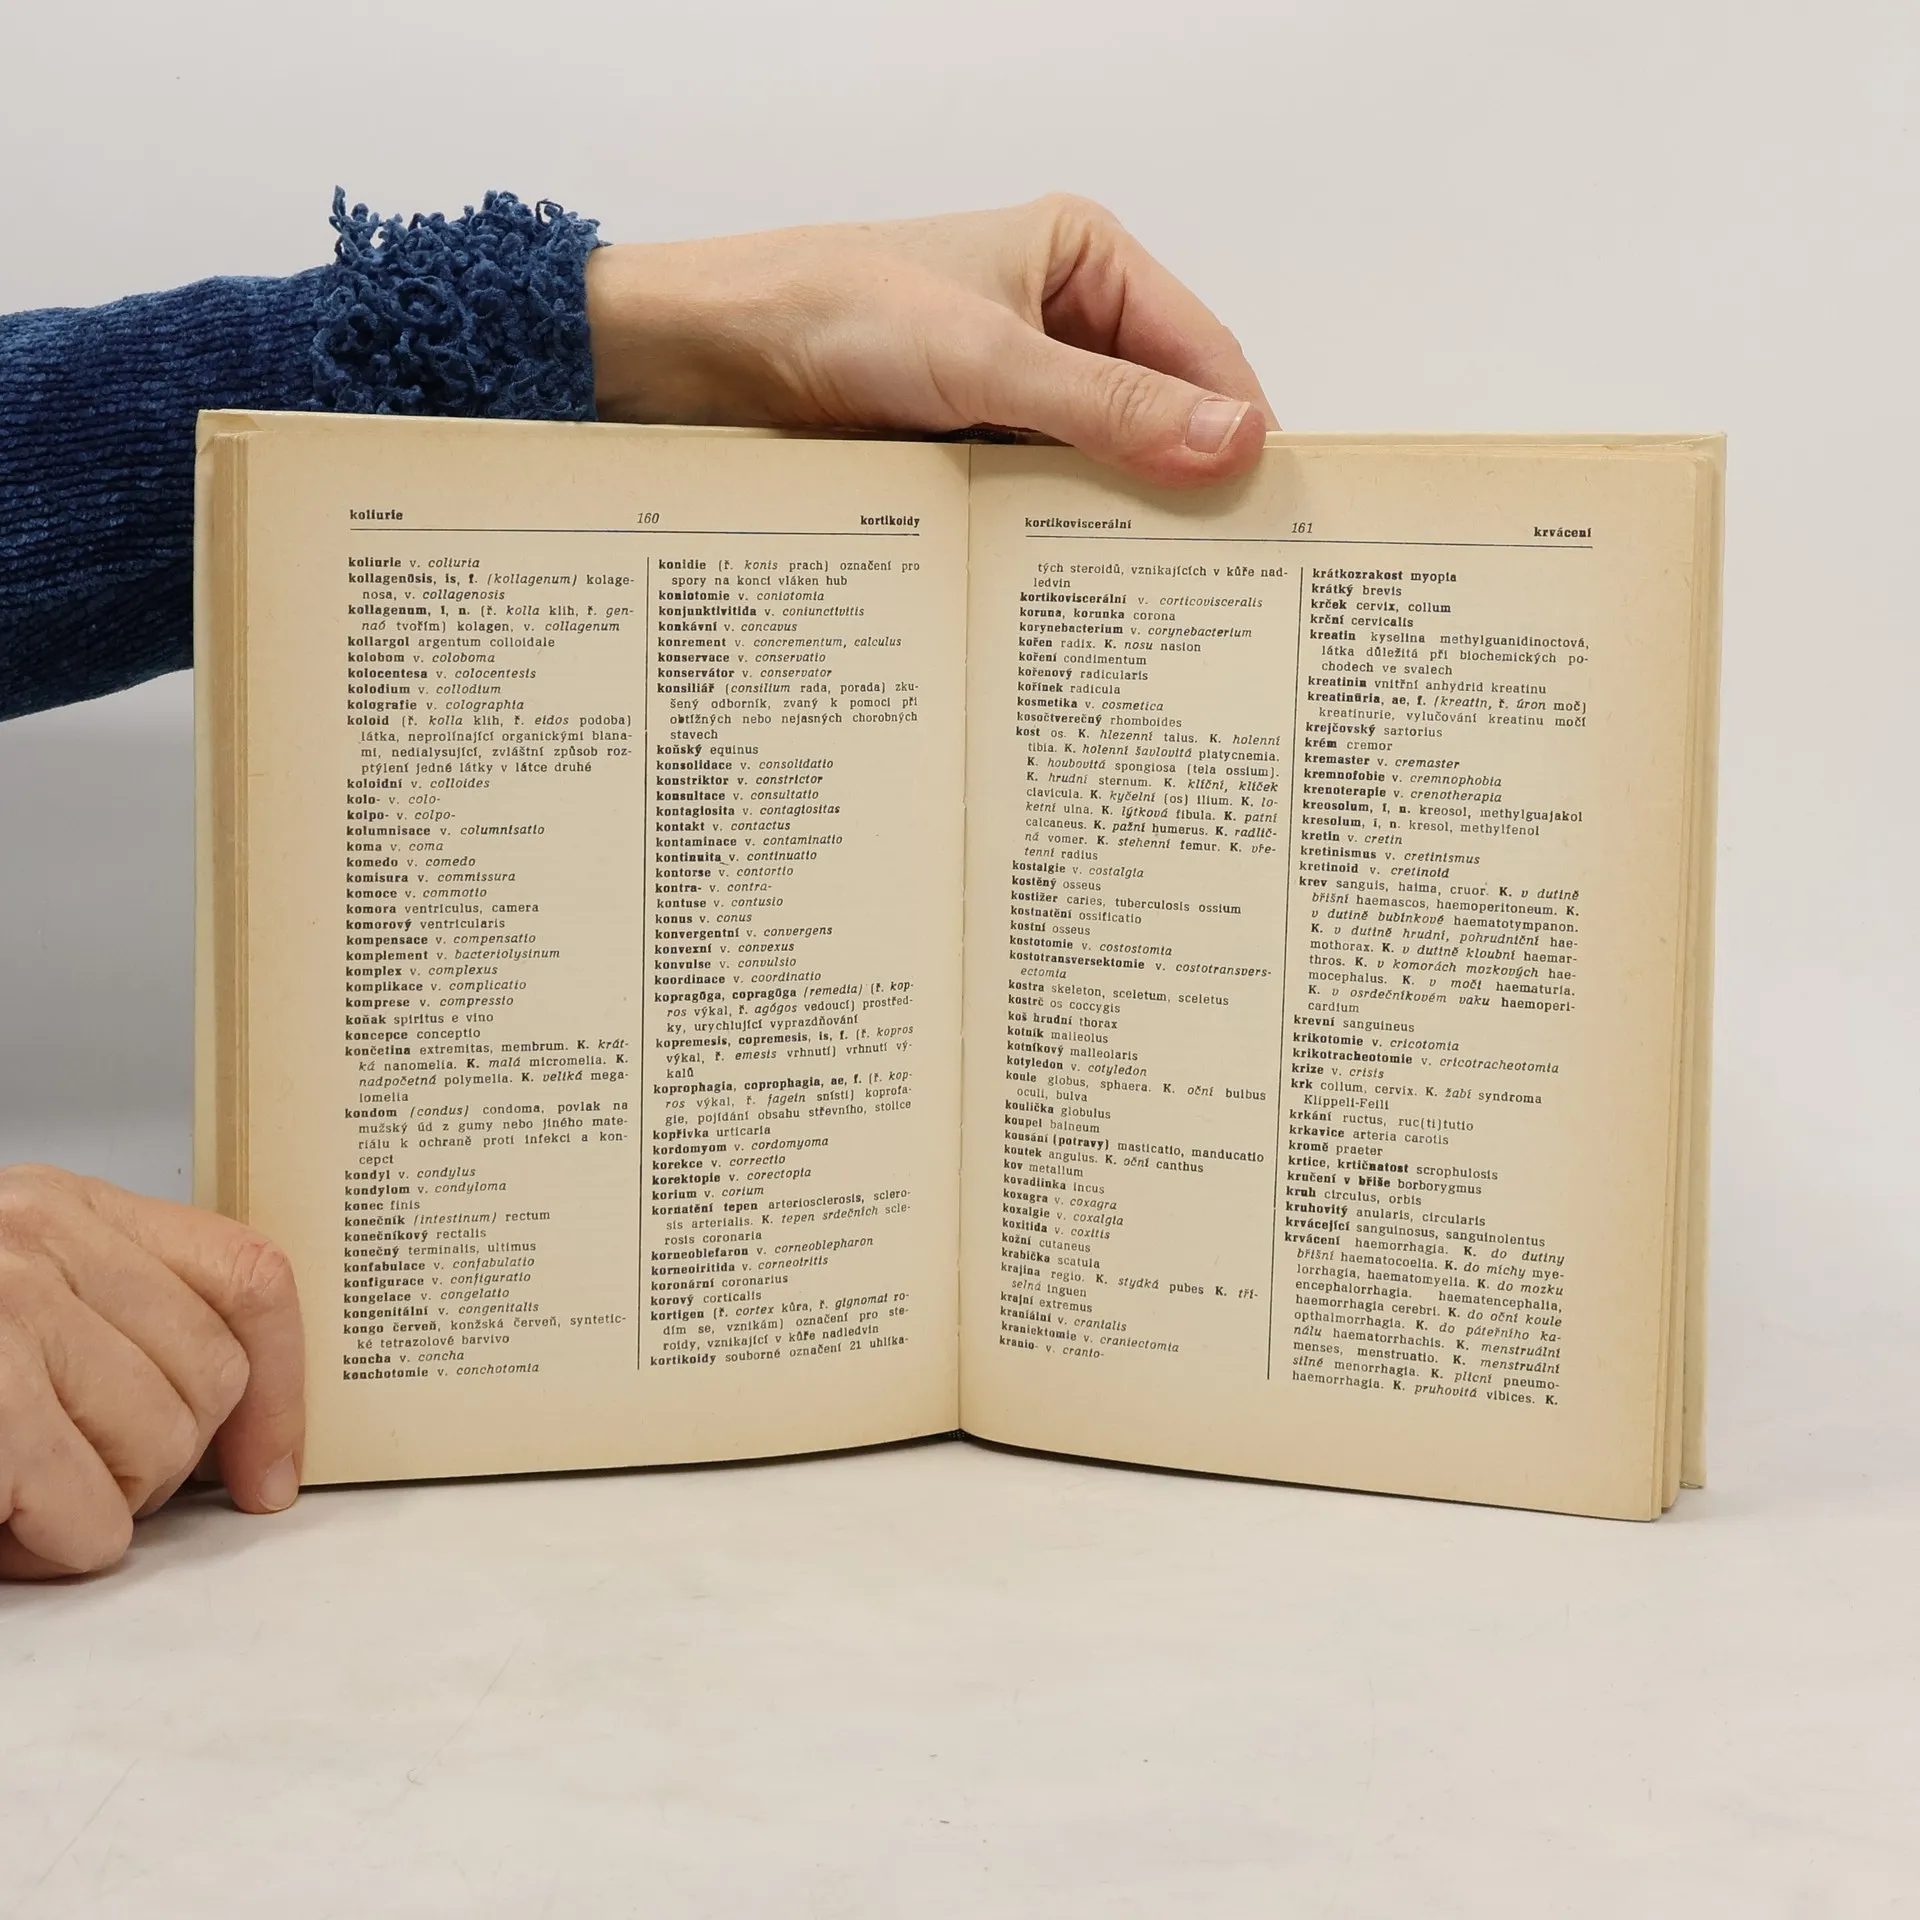 koliurie 160 kortikoidy
koliurie v. coliuria
kollagenōsis, is, f. (kollagenum) kolage-
nosa, v. collagenosis
kollagenum, ī, n. (ř. kolla klih, ř. gen-
naó tvořím) kolagen, v. collagenum
kollargol argentum colloidale
kolobom v. coloboma
kolocentesa v. colocentesis
kolodium v. collodium
kolografie v. colographia
koloid (ř. kolla klih, ř. eidos podoba)
látka, neprolínající organickými blana-
mi, nedialysující, zvláštní způsob roz-
ptýlení jedné látky v látce druhé
koloidní v. colloides
kolo- v. colo-
kolpo- v. colpo-
kolumnisace v. columnisatio
koma v. coma
komedo v. comedo
komisura v. commissura
komoce v. commotio
komora ventriculus, camera
komorový ventricularis
kompensace v. compensatio
komplement v. bacteriolysinum
komplex v. complexus
komplikace v. complicatio
komprese v. compressio
koňak spiritus e vino
koncepce conceptio
končetina extremitas, membrum. K. krát-
ká nanomelia. K. malá micromelia. K.
nadpočetná polymelia. K. veliká mega-
lomelia
kondom (condus) condoma, povlak na
mužský úd z gumy nebo jiného mate-
riálu k ochraně proti infekci a kon-
cepci
kondyl v. condylus
kondylom v. condyloma
konec finis
konečník (intestinum) rectum
konečníkový rectalis
konečný terminalis, ultimus
konfabulace v. confabulatio
konfigurace v. configuratio
kongelace v. congelatio
kongenitální v. congenitalis
kongo červeň, konžská červeň, syntetic-
ké tetrazolové barvivo
koncha v. concha
konchotomie v. conchotomia
konidie (ř. konis prach) označení pro
spory na konci vláken hub
koniotomie v. coniotomia
konjunktivitida v. coniunctivitis
konkávní v. concavus
konrement v. concrementum, calculus
konservace v. conservatio
konservátor v. conservator
konsiliář (consilium rada, porada) zku-
šený odborník, zvaný k pomoci při
obtížných nebo nejasných chorobných
stavech
koňský equinus
konsolidace v. consolidatio
konstriktor v. constrictor
konsultace v. consultatio
kontagiosita v. contagiositas
kontakt v. contactus
kontaminace v. contaminatio
kontinuita v. continuatio
kontorse v. contortio
kontra- v. contra-
kontuse v. contusio
konus v. conus
konvergentní v. convergens
konvexní v. convexus
konvulse v. convulsio
koordinace v. coordinatio
kopragōga, copragōga (remedia) (ř. kop-
ros výkal, ř. agógos vedoucí) prostřed-
ky, urychlující vyprazdňování
kopremesis, copremesis, is, f. (ř. kopros
výkal, ř. emesis vrhnutí) vrhnutí vý-
kalů
koprophagia, coprophagia, ae, f. (ř. kop-
ros výkal, ř. fagein snísti) koprofa-
gie, pojídání obsahu střevního, stolice
kopřivka urticaria
kordomyom v. cordomyoma
korekce v. correctio
korektopie v. corectopia
korium v. corium
kornatění tepen arteriosclerosis, sclero-
sis arterialis. K. tepen srdečních scle-
rosis coronaria
korneoblefaron v. corneoblepharon
korneoiritida v. corneoiritis
koronární coronarius
korový corticalis
kortigen (ř. cortex kůra, ř. gignomai ro-
dím se, vznikám) označení pro ste-
roidy, vznikající v kůře nadledvin
kortikoidy souborné označení 21 uhlíka-
kortikoviscerální 161 krvácení
tých steroidů, vznikajících v kůře nad-
ledvin
kortikoviscerální v. corticovisceralis
koruna, korunka corona
korynebacterium v. corynebacterium
kořen radix. K. nosu nasion
koření condimentum
kořenový radicularis
kořínek radicula
kosmetika v. cosmetica
kosočtverečný rhomboides
kost os. K. hlezenní talus. K. holenní
tibia. K. holenní šavlovitá platycnemia.
K. houbovitá spongiosa (tela ossium).
K. hrudní sternum. K. klíční, klíček
clavicula. K. kyčelní (os) ilium. K. lo-
ketní ulna. K. lýtková fibula. K. patní
calcaneus. K. pažní humerus. K. radlič-
ná vomer. K. stehenní femur. K. vře-
tenní radius
kostalgie v. costalgia
kostěný osseus
kostižer caries, tuberculosis ossium
kostnatění ossificatio
kostní osseus
kostotomie v. costostomia
kostotransversektomie v. costotransvers-
ectomia
kostra skeleton, sceletum, sceletus
kostrč os coccygis
koš hrudní thorax
kotník malleolus
kotníkový malleolaris
kotyledon v. cotyledon
koule globus, sphaera. K. oční bulbus
oculi, bulva
koulička globulus
koupel balneum
kousání (potravy) masticatio, manducatio
koutek angulus. K. oční canthus
kov metallum
kovadlinka incus
koxagra v. coxagra
koxalgie v. coxalgia
koxitida v. coxitis
kožní cutaneus
krabička scatula
krajina regio. K. stydká pubes K. tří-
selná inguen
krajní extremus
kraniální v. cranialis
kraniektomie v. craniectomia
kranio- v. cranio-
krátkozrakost myopia
krátký brevis
krček cervix, collum
krční cervicalis
kreatin kyselina methylguanidinoctová,
látka důležitá při biochemických po-
chodech ve svalech
kreatinin vnitřní anhydrid kreatinu
kreatinūria, ae, f. (kreatin, ř. úron moč)
kreatinurie, vylučování kreatinu močí
krejčovský sartorius
krém cremor
kremaster v. cremaster
kremnofobie v. cremnophobia
krenoterapie v. crenotherapia
kreosolum, ī, n. kreosol, methylguajakol
kresolum, ī, n. kresol, methylfenol
kretin v. cretin
kretinismus v. cretinismus
kretinoid v. cretinoid
krev sanguis, haima, cruor. K. v dutině
břišní haemascos, haemoperitoneum. K.
v dutině bubínkové haematotympanon.
K. v dutině hrudní, pohrudniční hae-
mothorax. K. v dutině kloubní haemar-
thros. K. v komorách mozkových hae-
mocephalus. K. v moči haematuria.
K. v osrdečníkovém vaku haemoperi-
cardium
krevní sanguineus
krikotomie v. cricotomia
krikotracheotomie v. cricotracheotomia
krize v. crisis
krk collum, cervix. K. žabí syndroma
Klippeli-Feili
krkání ructus, ruc(ti)tutio
krkavice arteria carotis
kromě praeter
krtice, krtičnatost scrophulosis
kručení v břiše borborygmus
kruh circulus, orbis
kruhovitý anularis, circularis
krvácející sanguinosus, sanguinolentus
krvácení haemorrhagia. K. do dutiny
břišní haematocoelia. K. do míchy mye-
lorrhagia, haematomyelia. K. do mozku
encephalorrhagia. haematencephalia,
haemorrhagia cerebri. K. do oční koule
opthalmorrhagia. K. do páteřního ka-
nálu haematorrhachis. K. menstruální
menses, menstruatio. K. menstruální
silné menorrhagia. K. plicní pneumo-
haemorrhagia. K. pruhovitá vibices. K.